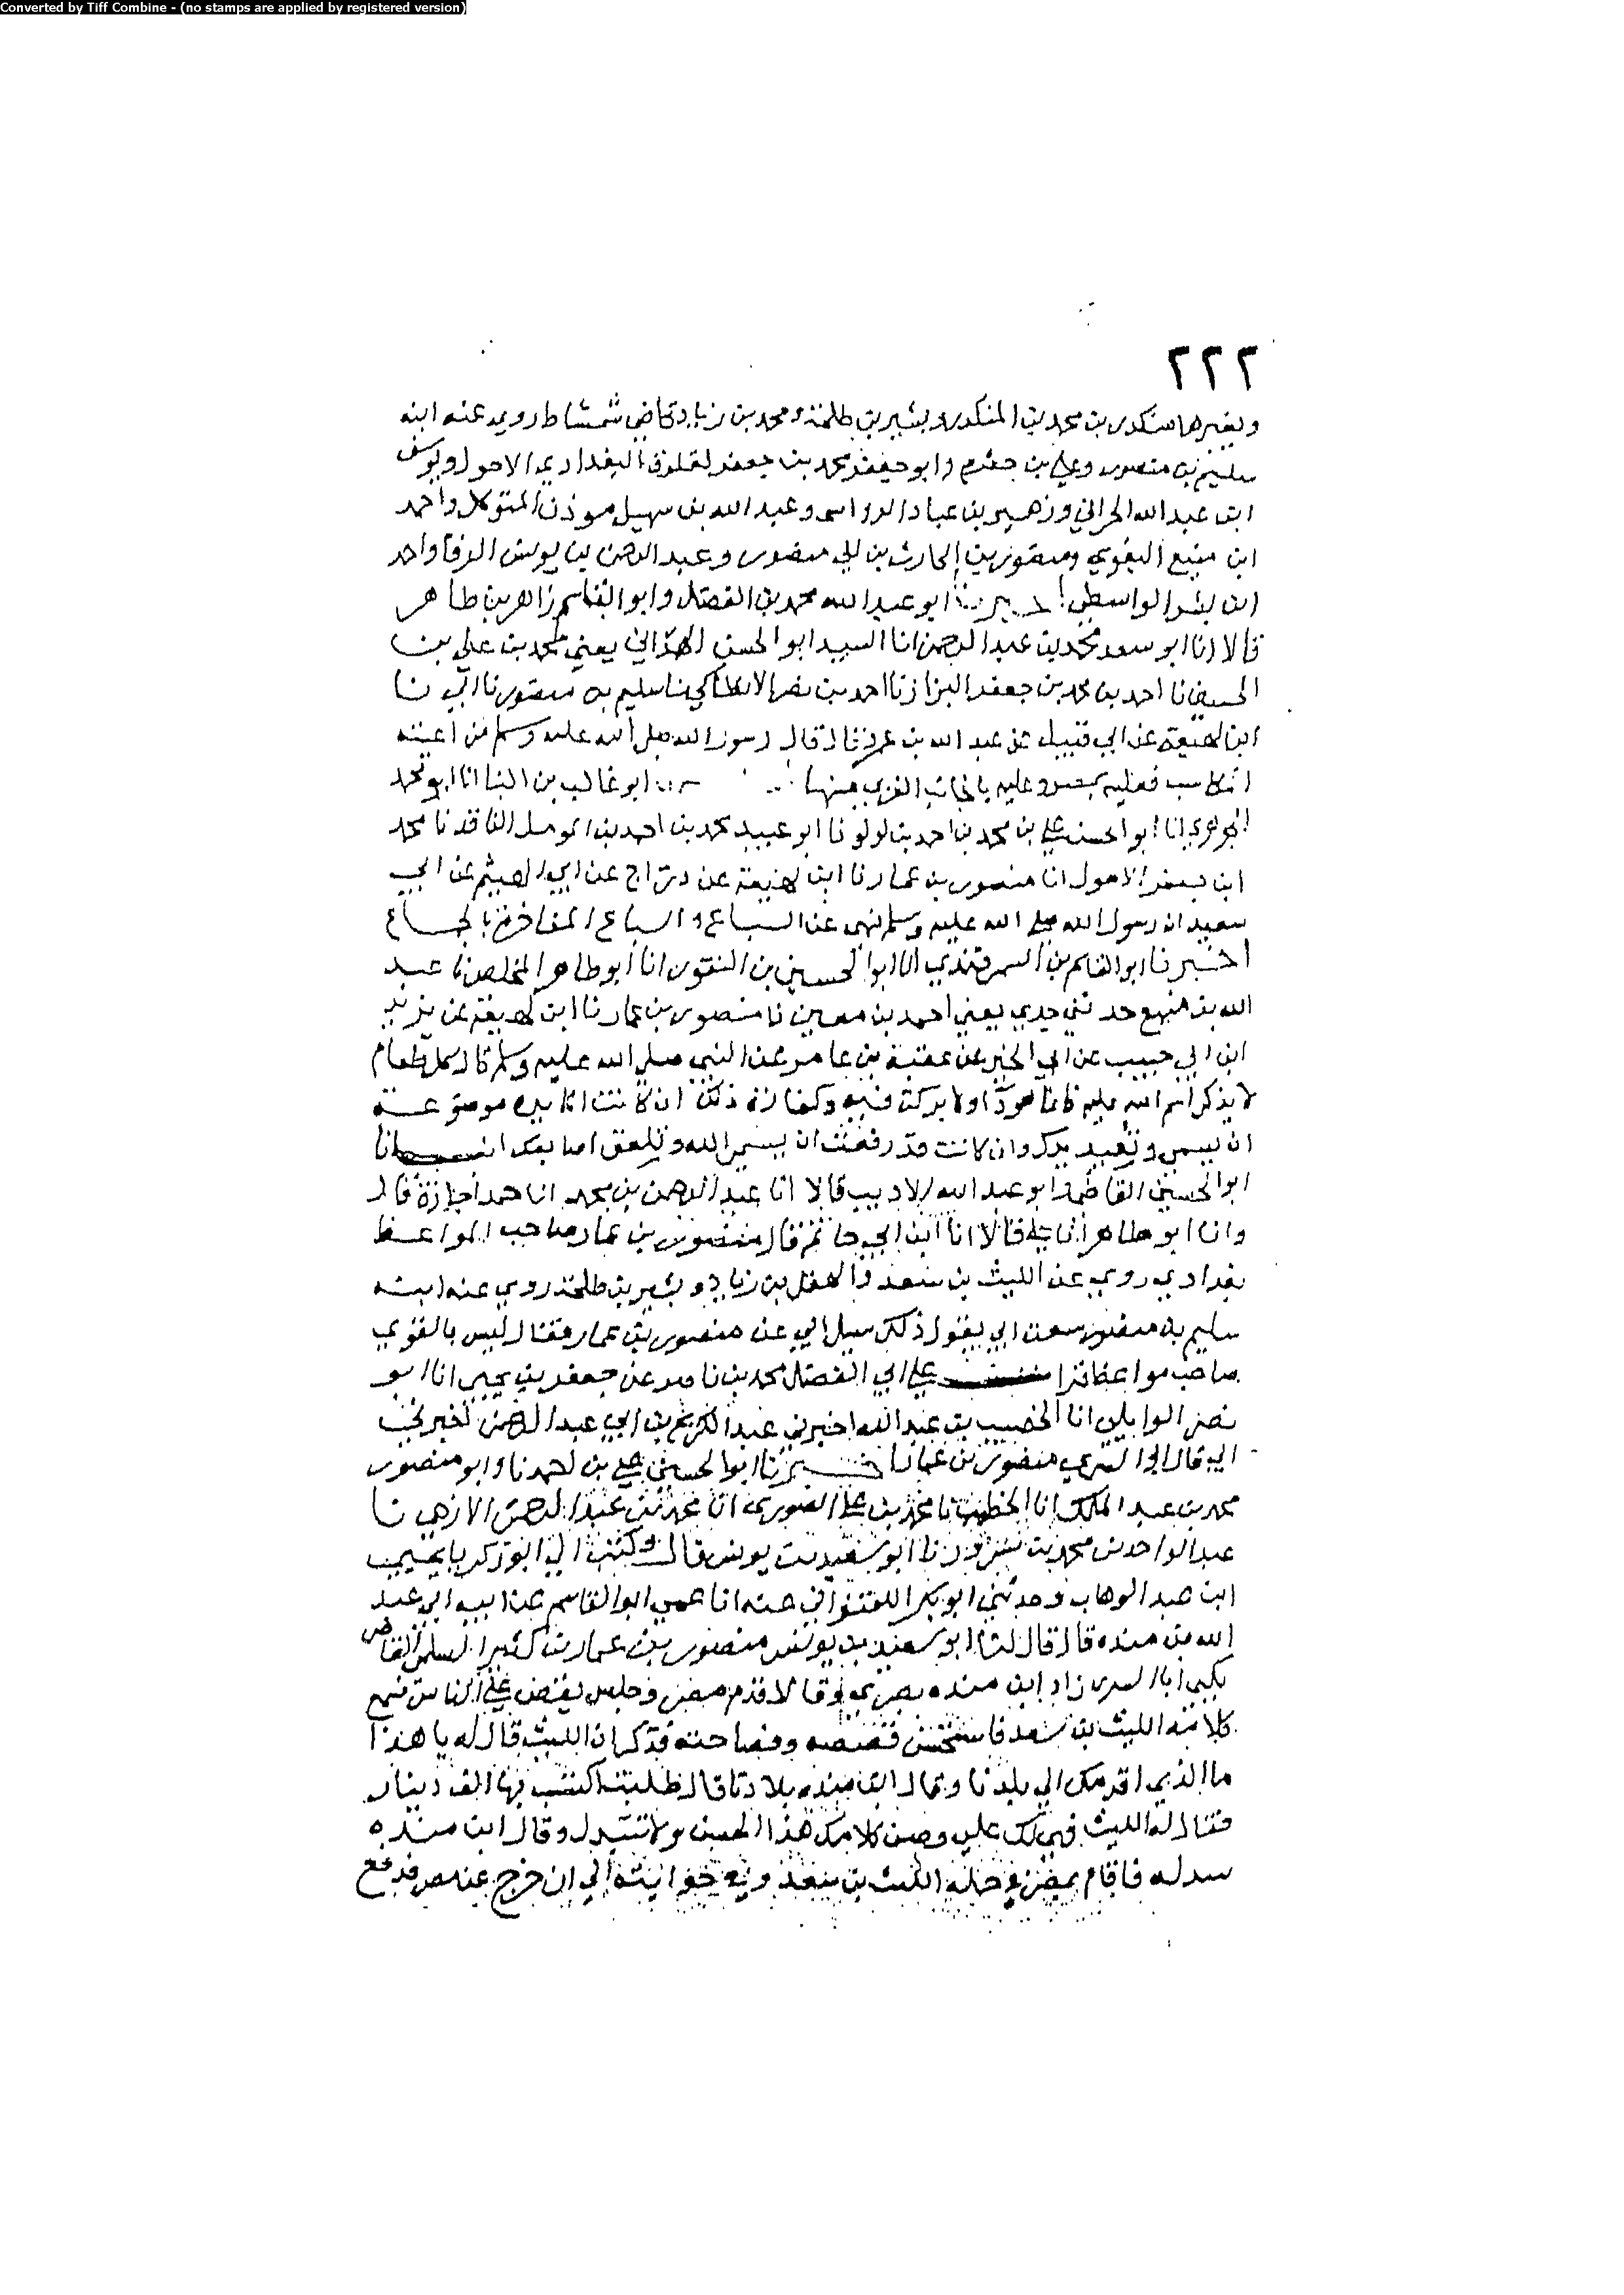 Converted by Tiff Combine - (no stamps are applied by registered version)
٢٢٢
وبغيرها منكدر بن محمد بن المنكدر وبشير بن طلحة ومحمد بن زياد قاضي شمشاط روى عنه ابنه
سليم بن منصور وعلي بن خشرم وابو جعفر محمد بن جعفر لقلوق البغدادي الاحول ويوسف
ابن عبد الله الحراني وزهير بن عباد الرواسى وعبد الله بن سهيل موذن المتوكل واحمد
ابن منيع البغوي ومنصور بن الحارث بن ابي منصور وعبد الرحمن بن يونس الرقا واحمد
ابن بشر الواسطي ابو عبد الله محمد بن الفضل وابو القاسم زاهر بن طاهر
قالا انا ابو سعد محمد بن عبد الرحمن انا السيد ابو الحسن الهمداني يعني محمد بن علي بن
الحسين نا احمد بن محمد بن جعفر البزاز نا احمد بن نصر الانطاكي نا سليم بن منصور نا ابي نا
ابن لهيعة عن ابي قبيل عن عبد الله بن عمرو قال قال رسول الله صلى الله عليه وسلم من اعيته
المكاسب فعليه بمصر وعليه بالجانب الغربي منها ابو غالب بن البنا انا ابو محمد
الجوهري انا ابو الحسن علي بن محمد بن احمد بن لولو نا ابو عبيد محمد بن احمد بن المومل الناقد نا محمد
ابن جعفر الاحول انا منصور بن عمار نا ابن لهيعة عن دراج عن ابي الهيثم عن ابي
سعيد ان رسول الله صلى الله عليه وسلم نهى عن السباع والسباع المفاخرة بالجماع
اخبرنا ابو القاسم بن السمرقندي انا ابو الحسين بن النقور انا ابو طاهر المخلص نا عبد
الله بن منيع حدثني جدي يعني احمد بن نا منصور بن عمار نا ابن لهيعة عن يزيد
ابن ابي حبيب عن ابي الخير عن عقبة بن عامر عن النبي صلى الله عليه وسلم قال كل طعام
لا يذكر اسم الله عليه فانما هو داو لا بركة فيه وكفارة ذلك ان كانت المايدة موضوعة
ان تسمي وتعيد يدك وان كانت قد رفعت ان تسمي الله وتلعق اصابعك انا
ابو الحسين القاضي وابو عبد الله الاديب قالا انا عبد الرحمن بن محمد انا حمد اجازة قال
وانا ابو طاهر انا علي قالا انا ابن ابي حاتم قال منصور بن عمار صاحب المواعظ
بغدادي روى عن الليث بن سعد والهقل بن زياد وبشير بن طلحة روى عنه ابنه
سليم بن منصور سمعت ابي يقول ذلك سيل ابي عن منصور بن عمار فقال ليس بالقوي
صاحب مواعظ قرا علي ابي الفضل محمد بن ناصر عن جعفر بن يحيى انا ابو
نصر الوايلي انا الخصيب بن عبد الله اخبرني عبد الكريم بن ابي عبد الرحمن اخبرني
ابي قال ابو السري منصور بن عمار اخبرنا ابو الحسين علي بن احمد نا وابو منصور
محمد بن عبد الملك انا الخطيب نا محمد بن علي الصوري انا محمد بن عبد الرحمن الازدي نا
عبد الواحد بن محمد بن مسرور نا ابو سعيد بن يونس قال وكتب الي ابو زكريا يحيى
ابن عبد الوهاب وحدثني ابو بكر اللفتواني عنه انا عمي ابو القاسم عن ابيه ابي عبد
الله بن منده قال قال لنا ابو سعيد بن يونس منصور بن عمار بن كثير السلمي القاص
يكنى ابا السري زاد ابن منده بصري وقالا قدم مصر وجلس يقص على الناس فسمع
كلامه الليث بن سعد فاستحسن قصصه وفصاحته فذكر ان الليث قال له يا هذا
ما الذي اقدمك الي بلدنا وقال ابن منده بلادنا قال طلبت اكتسب بها الف دينار
فقال له الليث فهي لك علي وصن كلامك هذا الحسن ولا تتبذل وقال ابن منده
فاقام بمصر في جملة الليث بن سعد وفي جرايته الي ان خرج عن مصر فدفع